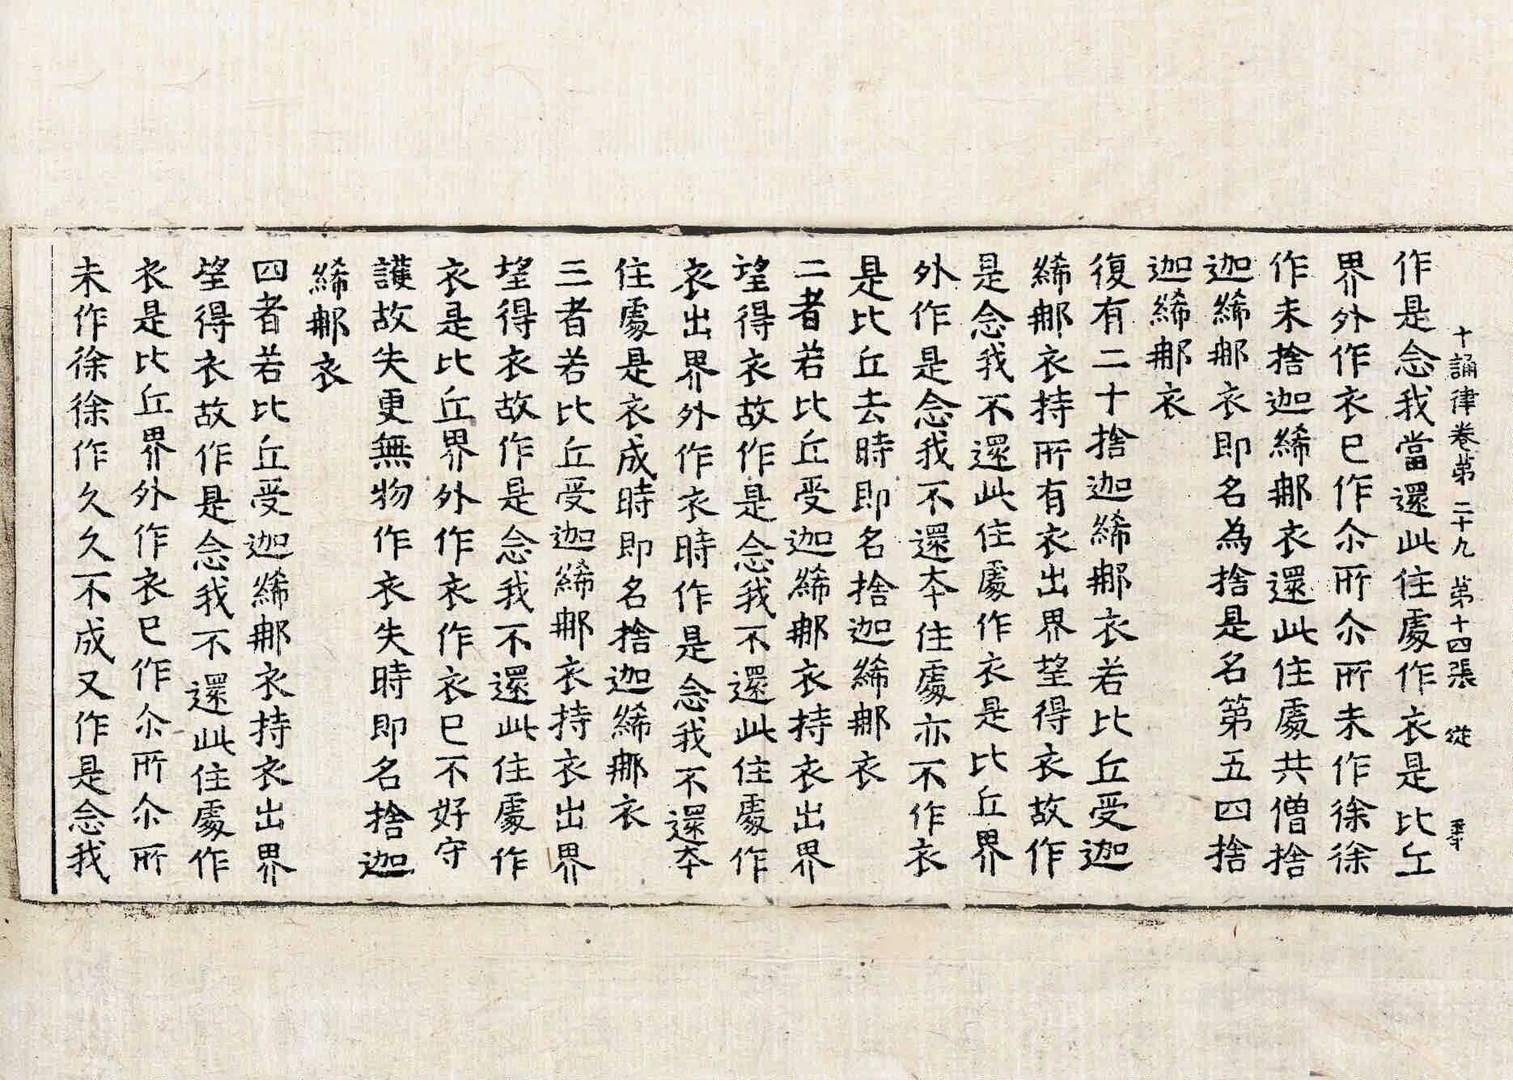 十誦律卷第二十九　第十四張　従
作是念我當還此住處作衣是比丘
界外作衣已作尒所尒所未作徐徐
作未捨迦絺那衣還此住處共僧捨
迦絺那衣即名為捨是名第五四捨
迦絺那衣
復有二十捨迦絺那衣若比丘受迦
絺那衣持所有衣出界望得衣故作
是念我不還此住處作衣是比丘界
外作是念我不還本住處亦不作衣
是比丘去時即名捨迦絺那衣
二者若比丘受迦絺那衣持衣出界
望得衣故作是念我不還此住處作
衣出界外作衣時作是念我不還本
住處是衣成時即名捨迦絺那衣
三者若比丘受迦絺那衣持衣出界
望得衣故作是念我不還此住處作
衣是比丘界外作衣作衣已不好守
護故失更無物作衣失時即名捨迦
絺那衣
四者若比丘受迦絺那衣持衣出界
望得衣故作是念我不還此住處作
衣是比丘界外作衣已作尒所尒所
未作徐徐作久久不成又作是念我